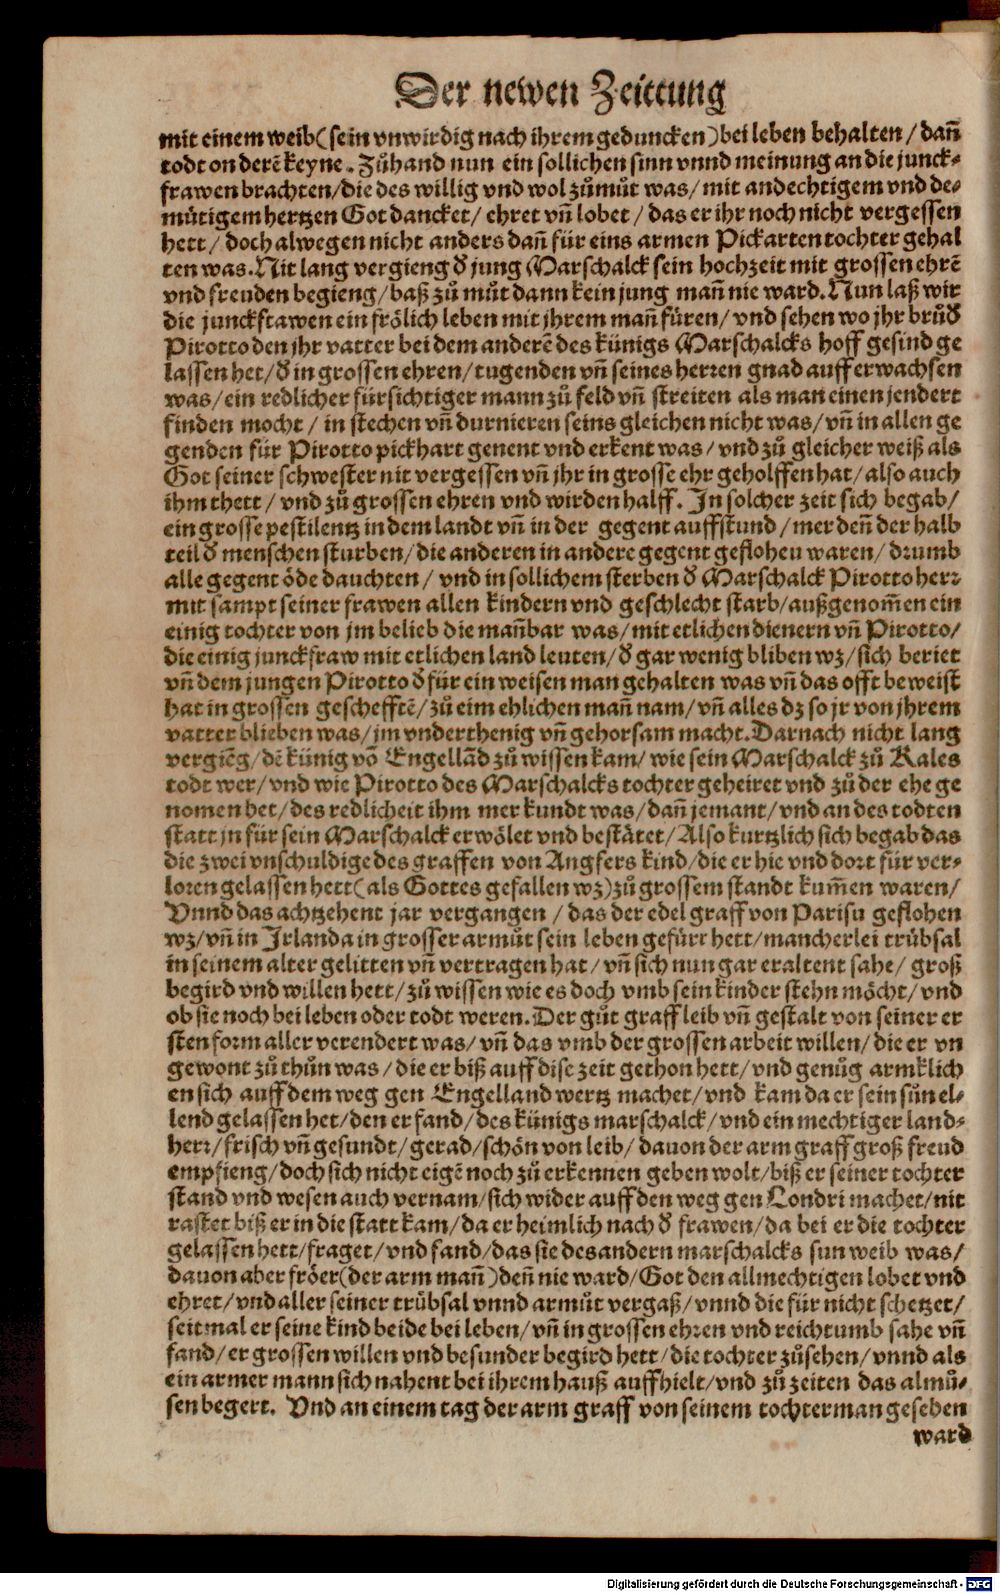 Der newen Zeittung
mit einem weib (sein vnwirdig nach ihrem geduncken) bei leben behalten / dañ
todt on derē keyne. Zůhand nun ein sollichen sinn vnnd meinung an die junck⸗
frawen brachten / die des willig vnd wol zůmůt was / mit andechtigem vnd de⸗
můtigem hertzen Got dancket / ehret vñ lobet / das er ihr noch nicht vergessen
hett / doch alwegen nicht anders dañ für eins armen Pickarten tochter gehal
ten was. Nit lang vergieng d̕ jung Marschalck sein hochzeit mit grossen ehrē
vnd freuden begieng / baß zů můt dann kein jung mañ nie ward. Nun laß wir
die junckfrawen ein frölich leben mit jhrem mañ füren / vnd sehen wo jhr brůd̕
Pirotto den jhr vatter bei dem anderē des künigs Marschalcks hoff gesind ge
lassen het / d̕ in grossen ehren / tugenden vñ seines herren gnad auff erwachsen
was / ein redlicher fürsichtiger mann zů feld vñ streiten als man einen jendert
finden mocht / in stechen vñ durnieren seins gleichen nicht was / vñ in allen ge
genden für Pirotto pickhart genent vnd erkent was / vnd zů gleicher weiß als
Got seiner schwester nit vergessen vñ jhr in grosse ehr geholffen hat / also auch
ihm thett / vnd zů grossen ehren vnd wirden halff. In solcher zeit sich begab /
ein grosse pestilentz in dem landt vñ in der gegent auffstund / mer deñ der halb
teil d̕ menschen sturben / die anderen in andere gegent geflohen waren / drumb
alle gegent öde dauchten / vnd in sollichem sterben d̕ Marschalck Pirotto herr
mit sampt seiner frawen allen kindern vnd geschlecht starb / außgenom̄en ein
einig tochter von jm belieb die mañbar was / mit etlichen dienern vñ Pirotto /
die einig junckfraw mit etlichen land leuten / d̕ gar wenig bliben wz / sich beriet
vñ dem jungen Pirotto d̕ für ein weisen man gehalten was vñ das offt beweist
hat in grossen geschefftē / zů eim ehlichen mañ nam / vñ alles dz so jr von jhrem
vatter blieben was / jm vnderthenig vñ gehorsam macht. Darnach nicht lang
vergiēg / dē künig vō Engellād zů wissen kam / wie sein Marschalck zů Kales
todt wer / vnd wie Pirotto des Marschalcks tochter geheiret vnd zů der ehe ge
nomen het / des redlicheit ihm mer kundt was / dañ jemant / vnd an des todten
statt jn für sein Marschalck erwölet vnd bestätet / Also kurtzlich sich begab das
die zwei vnschuldige des graffen von Angfers kind / die er hie vnd dort für ver⸗
loren gelassen hett (als Gottes gefallen wz) zů grossem standt kum̄en waren /
Vnnd das achtzehent jar vergangen / das der edel graff von Parisu geflohen
wz / vñ in Jrlanda in grosser armůt sein leben gefürr hett / mancherlei trübsal
in seinem alter gelitten vñ vertragen hat / vñ sich nun gar eraltent sahe / groß
begird vnd willen hett / zů wissen wie es doch vmb sein kinder stehn möcht / vnd
ob sie noch bei leben oder todt weren. Der gůt graff leib vñ gestalt von seiner er
sten form aller verendert was / vñ das vmb der grossen arbeit willen / die er vn
gewont zů thůn was / die er biß auff dise zeit gethon hett / vnd genůg armklich
en sich auff dem weg gen Engelland wertz machet / vnd kam da er sein sün el⸗
lend gelassen het / den er fand / des künigs marschalck / vnd ein mechtiger land⸗
herr / frisch vñ gesundt / gerad / schön von leib / dauon der arm graff groß freud
empfieng / doch sich nicht eigē noch zů erkennen geben wolt / biß er seiner tochter
stand vnd wesen auch vernam / sich wider auff den weg gen Londri machet / nit
rastet biß er in die statt kam / da er heimlich nach d̕ frawen / da bei er die tochter
gelassen hett / fraget / vnd fand / das sie des andern marschalcks sun weib was /
dauon aber fröer (der arm mañ) deñ nie ward / Got den allmechtigen lobet vnd
ehret / vnd aller seiner trübsal vnnd armůt vergaß / vnnd die für nicht schetzet /
seitmal er seine kind beide bei leben / vñ in grossen ehren vnd reichtumb sahe vñ
fand / er grossen willen vnd besunder begird hett / die tochter zůsehen / vnnd als
ein armer mann sich nahent bei ihrem hauß auffhielt / vnd zů zeiten das almů⸗
sen begert. Vnd an einem tag der arm graff von seinem tochterman gesehen
ward
Digitalisierung gefördert durch die Deutsche Forschungsgemeinschaft - DFG